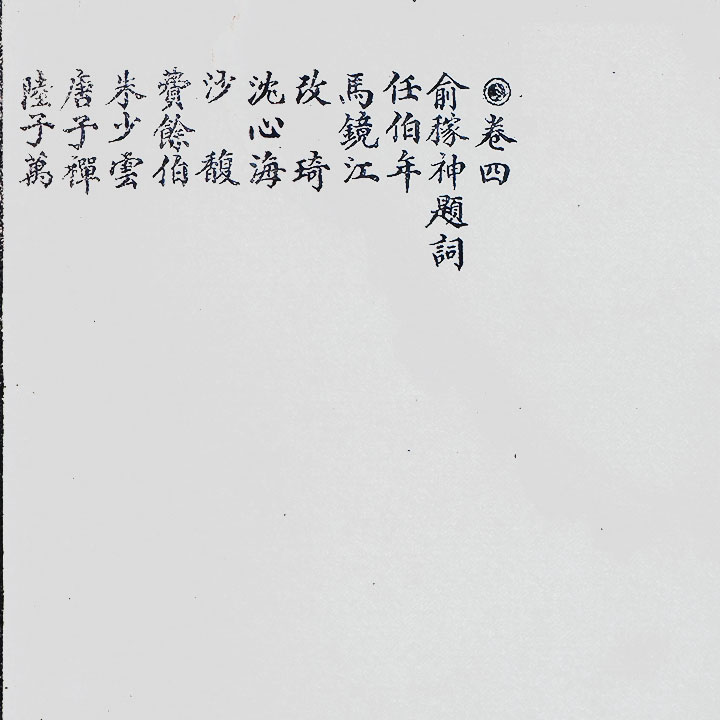 卷四
俞稼神題詞
任伯年
馬鏡江
改琦
沈心海
沙馥
費餘伯
朱少雲
唐子禪
陸子萬